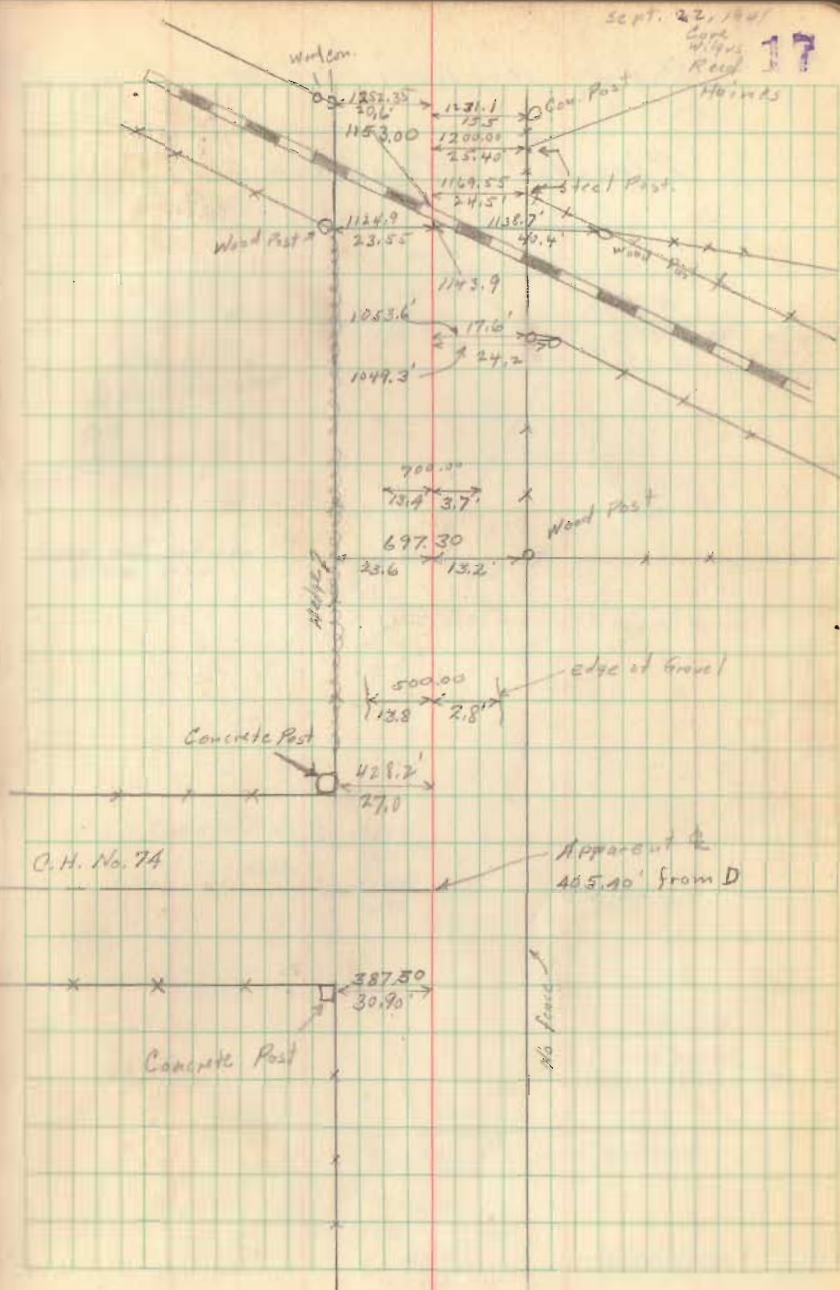 Sept. 22, 1941
17
Reed
Haines
1252.35
20.6'
1231.1
15.5
Con. Post
1153.00
1200.00
25.40'
1169.55
24.5'
Steel Post.
Wood Post
1124.9
23.55
1138.7'
40.4'
Wood Post
1143.9
1053.6'
17.6'
24.2
1049.3'
700.00
13.4'
3.7'
697.30
23.6
13.2'
Wood Post
Hedge
500.00
13.8
2.8'
edge of Gravel
Concrete Post
428.2'
27.0
C.H. No. 74
Apparent ℄
405.40' from D
387.50
30.90'
No fence
Concrete Post